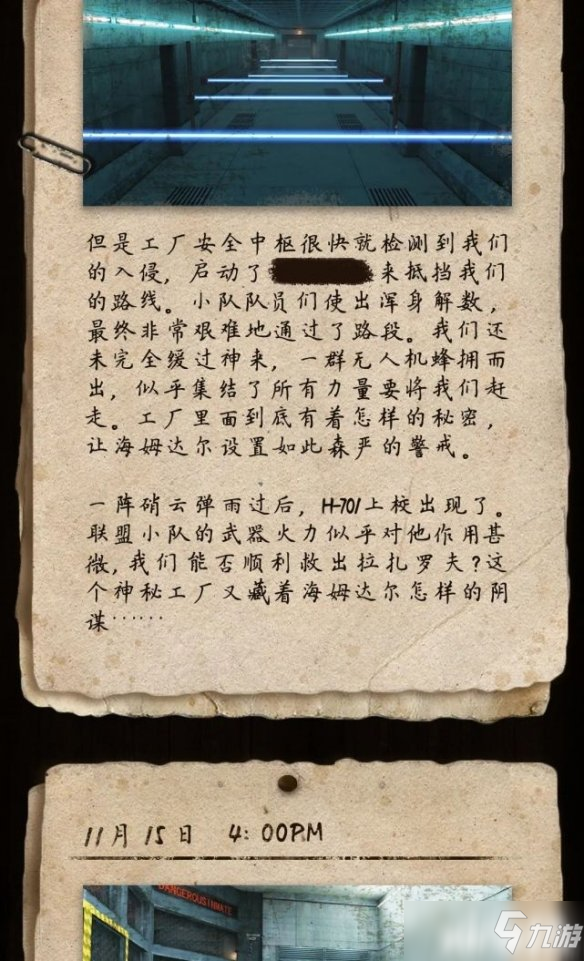 但是工厂安全中枢很快就检测到我们
的入侵，启动了 来抵挡我们
的路线。小队队员们使出浑身解数，
最终非常艰难地通过了路段。我们还
未完全缓过神来，一群无人机蜂拥而
出，似乎集结了所有力量要将我们赶
走。工厂里面到底有着怎样的秘密，
让海姆达尔设置如此森严的警戒。
一阵硝云弹雨过后，H-701上校出现了。
联盟小队的武器火力似乎对他作用甚
微，我们能否顺利救出拉扎罗夫？这
个神秘工厂又藏着海姆达尔怎样的阴
谋……
11月15日 4：00PM
DANGEROUS INMATE
九游